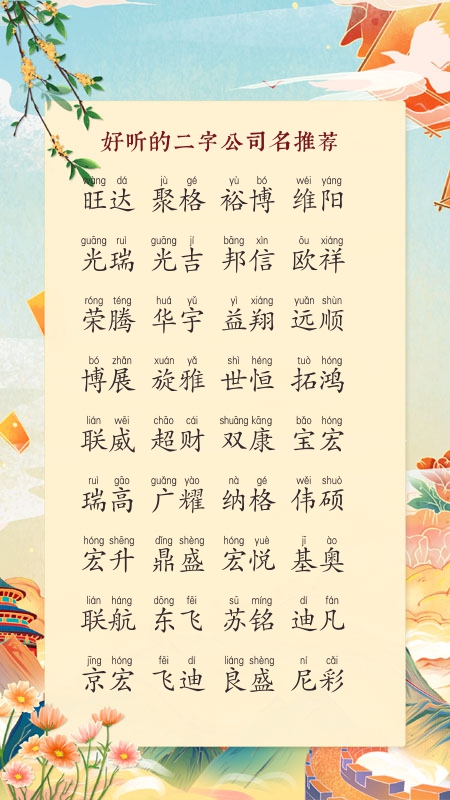 好听的二字公司名推荐
wàng dá jù gé yù bó wéi yáng
旺达 聚格 裕博 维阳
guāng ruì guāng jí bāng xìn ōu xiáng
光瑞 光吉 邦信 欧祥
róng téng huá yǔ yì xiáng yuǎn shùn
荣腾 华宇 益翔 远顺
bó zhǎn xuán yǎ shì héng tuò hóng
博展 旋雅 世恒 拓鸿
lián wēi chāo cái shuāng kāng bǎo hóng
联威 超财 双康 宝宏
ruì gāo guǎng yào nà gé wěi shuò
瑞高 广耀 纳格 伟硕
hóng shēng dǐng shèng hóng yuè jī ào
宏升 鼎盛 宏悦 基奥
lián háng dōng fēi sū míng dí fán
联航 东飞 苏铭 迪凡
jīng hóng fēi dí liáng shèng ní cǎi
京宏 飞迪 良盛 尼彩